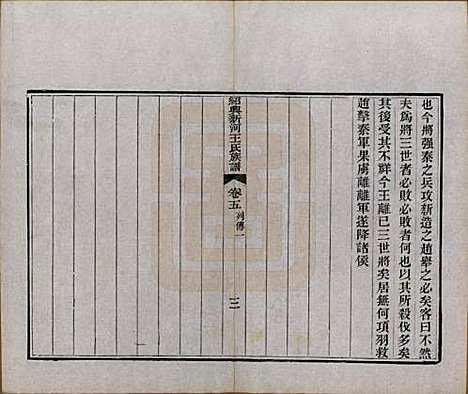 也今將强秦之兵攻新造之趙舉之必矣客曰不然
夫爲將三世者必敗必敗者何也以其所殺伐多矣
其後受其不祥今王離已三世將矣居無何項羽救
趙擊秦軍果虜離離軍遂降諸侯
紹興新河王氏族譜
卷五列傳一
三